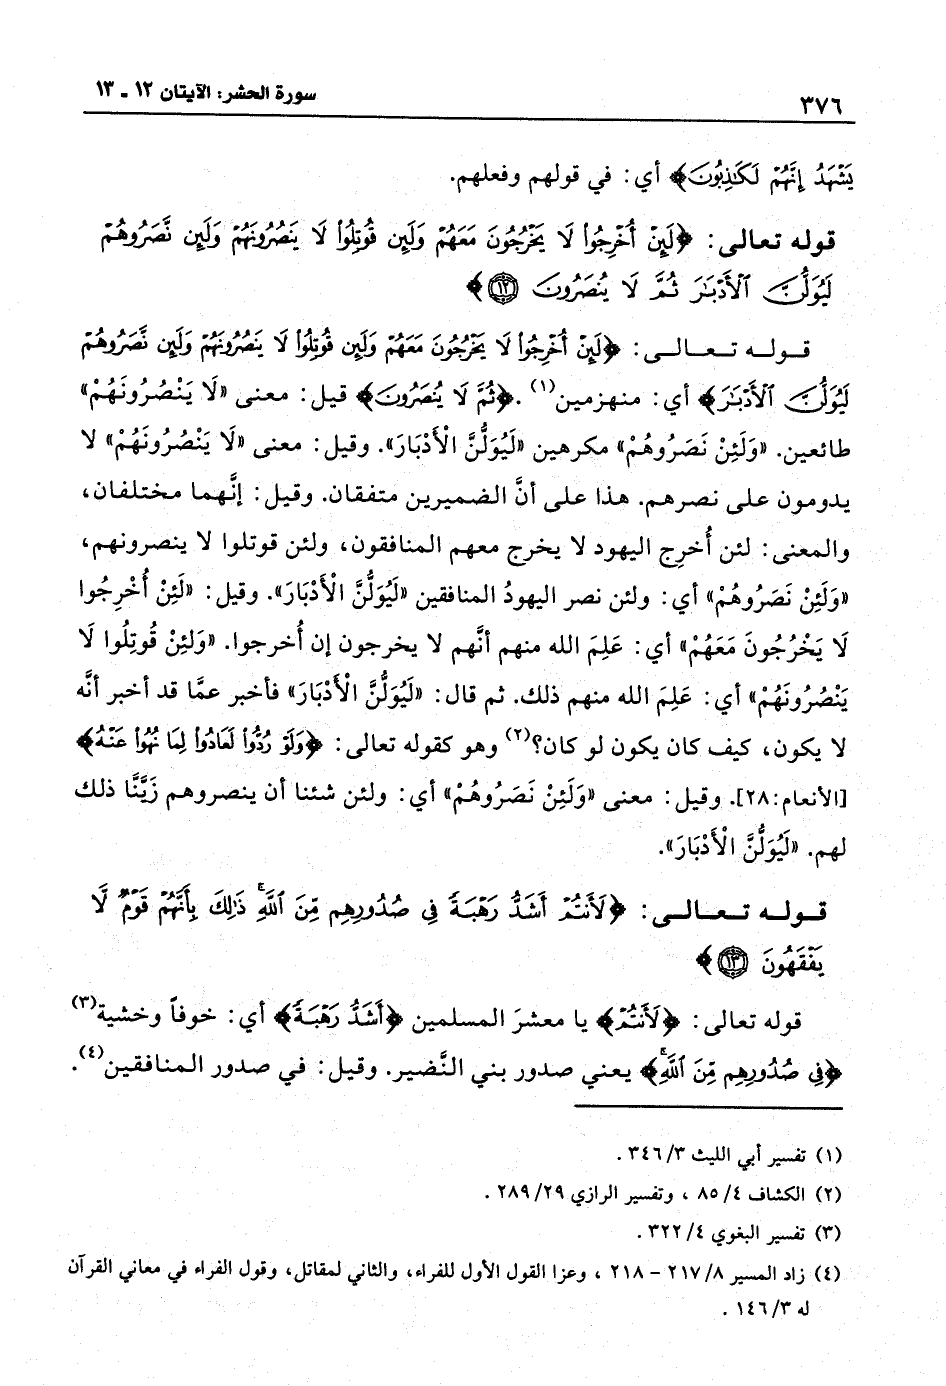 ٣٧٦ سورة الحشر: الآيتان ١٢ ـ ١٣
يَشْهَدُ إِنَّهُمْ لَكَٰذِبُونَ﴾ أي: في قولهم وفعلهم.
قوله تعالى: ﴿لَئِنْ أُخْرِجُوا۟ لَا يَخْرُجُونَ مَعَهُمْ وَلَئِن قُوتِلُوا۟ لَا يَنصُرُونَهُمْ وَلَئِن نَّصَرُوهُمْ
لَيُوَلُّنَّ ٱلْأَدْبَٰرَ ثُمَّ لَا يُنصَرُونَ ۝١٢﴾
قـولـه تـعـالـى: ﴿لَئِنْ أُخْرِجُوا۟ لَا يَخْرُجُونَ مَعَهُمْ وَلَئِن قُوتِلُوا۟ لَا يَنصُرُونَهُمْ وَلَئِن نَّصَرُوهُمْ
لَيُوَلُّنَّ ٱلْأَدْبَٰرَ﴾ أي: منهزمين(١). ﴿ثُمَّ لَا يُنصَرُونَ﴾ قيل: معنى «لَا يَنْصُرُونَهُمْ»
طائعين. «وَلَئِنْ نَصَرُوهُمْ» مكرهين «لَيُوَلُّنَّ الْأَدْبَارَ». وقيل: معنى «لَا يَنْصُرُونَهُمْ» لا
يدومون على نصرهم. هذا على أنَّ الضميرين متفقان. وقيل: إنَّهما مختلفان،
والمعنى: لئن أُخرِج اليهود لا يخرج معهم المنافقون، ولئن قوتلوا لا ينصرونهم،
«وَلَئِنْ نَصَرُوهُمْ» أي: ولئن نصر اليهودُ المنافقين «لَيُوَلُّنَّ الْأَدْبَارَ». وقيل: «لَئِنْ أُخْرِجُوا
لَا يَخْرُجُونَ مَعَهُمْ» أي: عَلِمَ الله منهم أنَّهم لا يخرجون إن أُخرجوا. «وَلَئِنْ قُوتِلُوا لَا
يَنْصُرُونَهُمْ» أي: عَلِمَ الله منهم ذلك. ثم قال: «لَيُوَلُّنَّ الْأَدْبَارَ» فأخبر عمَّا قد أخبر أنَّه
لا يكون، كيف كان يكون لو كان؟(٢) وهو كقوله تعالى: ﴿وَلَوْ رُدُّوا۟ لَعَادُوا۟ لِمَا نُهُوا۟ عَنْهُ﴾
[الأنعام:٢٨]. وقيل: معنى «وَلَئِنْ نَصَرُوهُمْ» أي: ولئن شئنا أن ينصروهم زَيَّنَّا ذلك
لهم. «لَيُوَلُّنَّ الْأَدْبَارَ».
قـولـه تـعـالـى: ﴿لَأَنتُمْ أَشَدُّ رَهْبَةً فِى صُدُورِهِم مِّنَ ٱللَّهِ ۚ ذَٰلِكَ بِأَنَّهُمْ قَوْمٌ لَّا
يَفْقَهُونَ ۝١٣﴾
قوله تعالى: ﴿لَأَنتُمْ﴾ يا معشرَ المسلمين ﴿أَشَدُّ رَهْبَةً﴾ أي: خوفاً وخشية(٣)
﴿فِى صُدُورِهِم مِّنَ ٱللَّهِ ۚ﴾ يعني صدور بني النَّضير. وقيل: في صدور المنافقين(٤).
(١) تفسير أبي الليث ٣/ ٣٤٦ .
(٢) الكشاف ٤/ ٨٥ ، وتفسير الرازي ٢٩/ ٢٨٩ .
(٣) تفسير البغوي ٤/ ٣٢٢ .
(٤) زاد المسير ٨/ ٢١٧ – ٢١٨ ، وعزا القول الأول للفراء، والثاني لمقاتل، وقول الفراء في معاني القرآن
له ٣/ ١٤٦ .